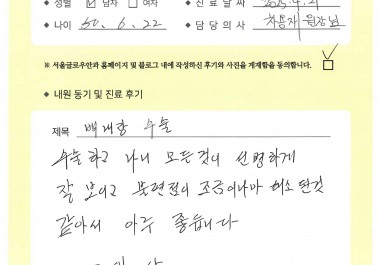 ◆ 성별 ☑ 남자 □ 여자 ◆ 진료날짜 2025.4.21
◆ 나이 50.6.22 ◆ 담당의사 원장님
※ 서울글로우안과 홈페이지 및 블로그 내에 작성하신 후기와 사진을 게재함을 동의합니다. ☑
◆ 내원 동기 및 진료 후기
제목 백내장 수술
수술하고 나니 모든것이 선명하게
잘 보이고 불편점이 조금이나마 해소 된것
같아서 아주 좋습니다